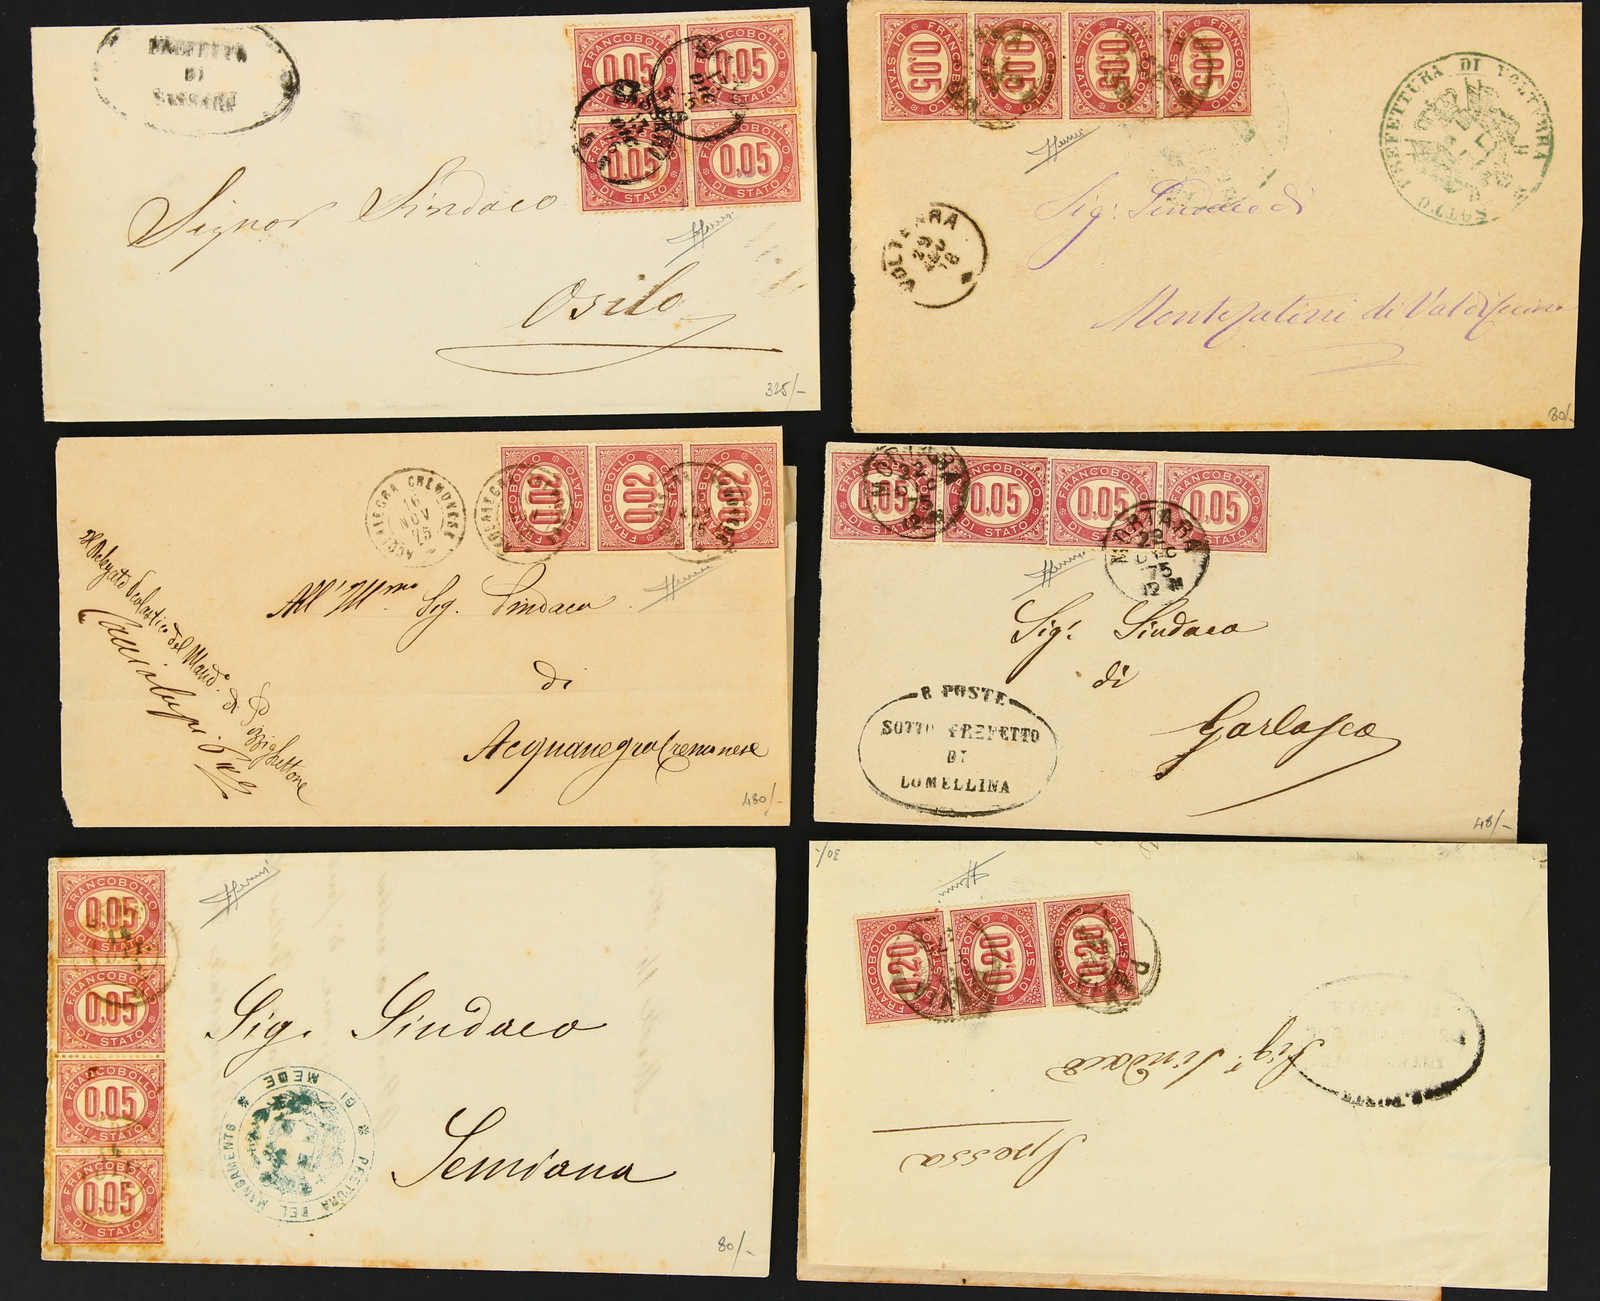 PREFETTO
DI
SASSARI
FRANCOBOLLO
0,05
DI STATO
FRANCOBOLLO
0,05
DI STATO
FRANCOBOLLO
0,05
DI STATO
FRANCOBOLLO
0,05
DI STATO
Signor Sindaco
Osilo
325/-
FRANCOBOLLO
0,05
DI STATO
FRANCOBOLLO
0,05
DI STATO
FRANCOBOLLO
0,05
DI STATO
FRANCOBOLLO
0,05
DI STATO
PREFETTURA DI VOLTERRA
SOTTO
VOLTERRA
29
78
Sig. Sindaco di
Montecatini di Valdicecina
80/-
FRANCOBOLLO
0,02
DI STATO
FRANCOBOLLO
0,02
DI STATO
FRANCOBOLLO
0,02
DI STATO
ACQUANEGRA CREMONESE
16
NOV
75
Il Delegato Scolastico del Mand.º di Pizzighettone
All' Ill.mo Sig. Sindaco
di
Acquanegra Cremonese
480/-
FRANCOBOLLO
0,05
DI STATO
FRANCOBOLLO
0,05
DI STATO
FRANCOBOLLO
0,05
DI STATO
FRANCOBOLLO
0,05
DI STATO
MORTARA
22
DIC
75
12 M
MORTARA
22
DIC
75
12 M
Sig. Sindaco
di
Garlasco
R POSTE
SOTTO PREFETTO
DI
LOMELLINA
48/-
FRANCOBOLLO
0,05
DI STATO
FRANCOBOLLO
0,05
DI STATO
FRANCOBOLLO
0,05
DI STATO
FRANCOBOLLO
0,05
DI STATO
Sig. Sindaco
Semiana
PRETURA DEL MANDAMENTO
DI MEDE
80/-
30/-
FRANCOBOLLO
0,20
DI STATO
FRANCOBOLLO
0,20
DI STATO
FRANCOBOLLO
0,20
DI STATO
Sig. Sindaco
Spessa